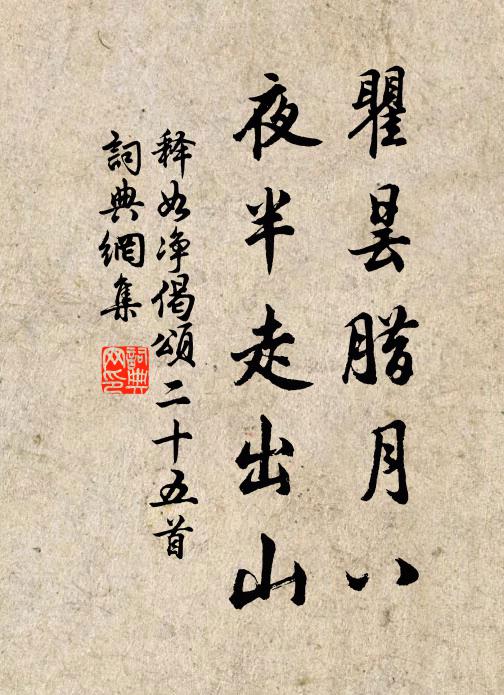 瞿昙腊月八
夜半走出山
释如净偈頌二十五首
詞典網集
詞典网印